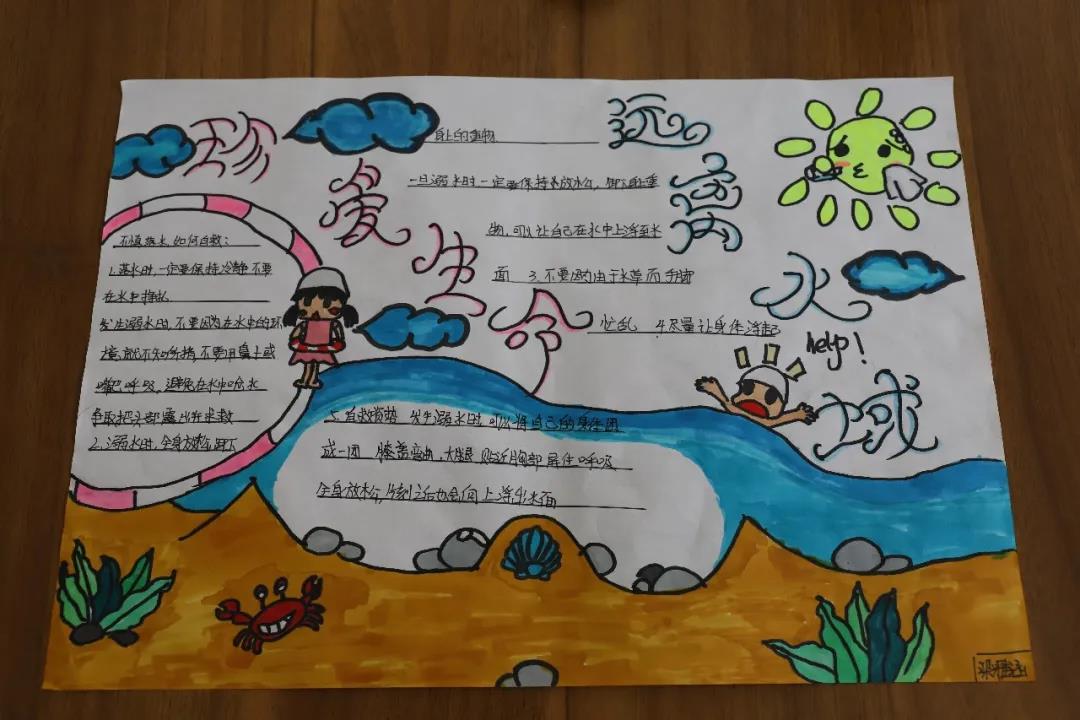 珍爱生命
远离水域
不慎落水，如何自救：
1.落水时，一定要保持冷静不要
在水中挣扎
发生溺水时，不要因为在水中的环
境，就不知所措，不要用鼻子或
嘴巴呼吸，避免在水中呛水
争取把头部露出并求救
2.溺水时，全身放松，卸下
身上的重物
一旦溺水时一定要保持放松，卸下身上重
物，可以让自己在水中上浮至水
面 3.不要因为由于水草而手脚
忙乱 4.尽量让身体浮起
help!
5.自救姿势 发生溺水时，可以将自己的身体团
成一团 膝盖弯曲，大腿贴近胸部屏住呼吸
全身放松，片刻之后也会向上浮出水面